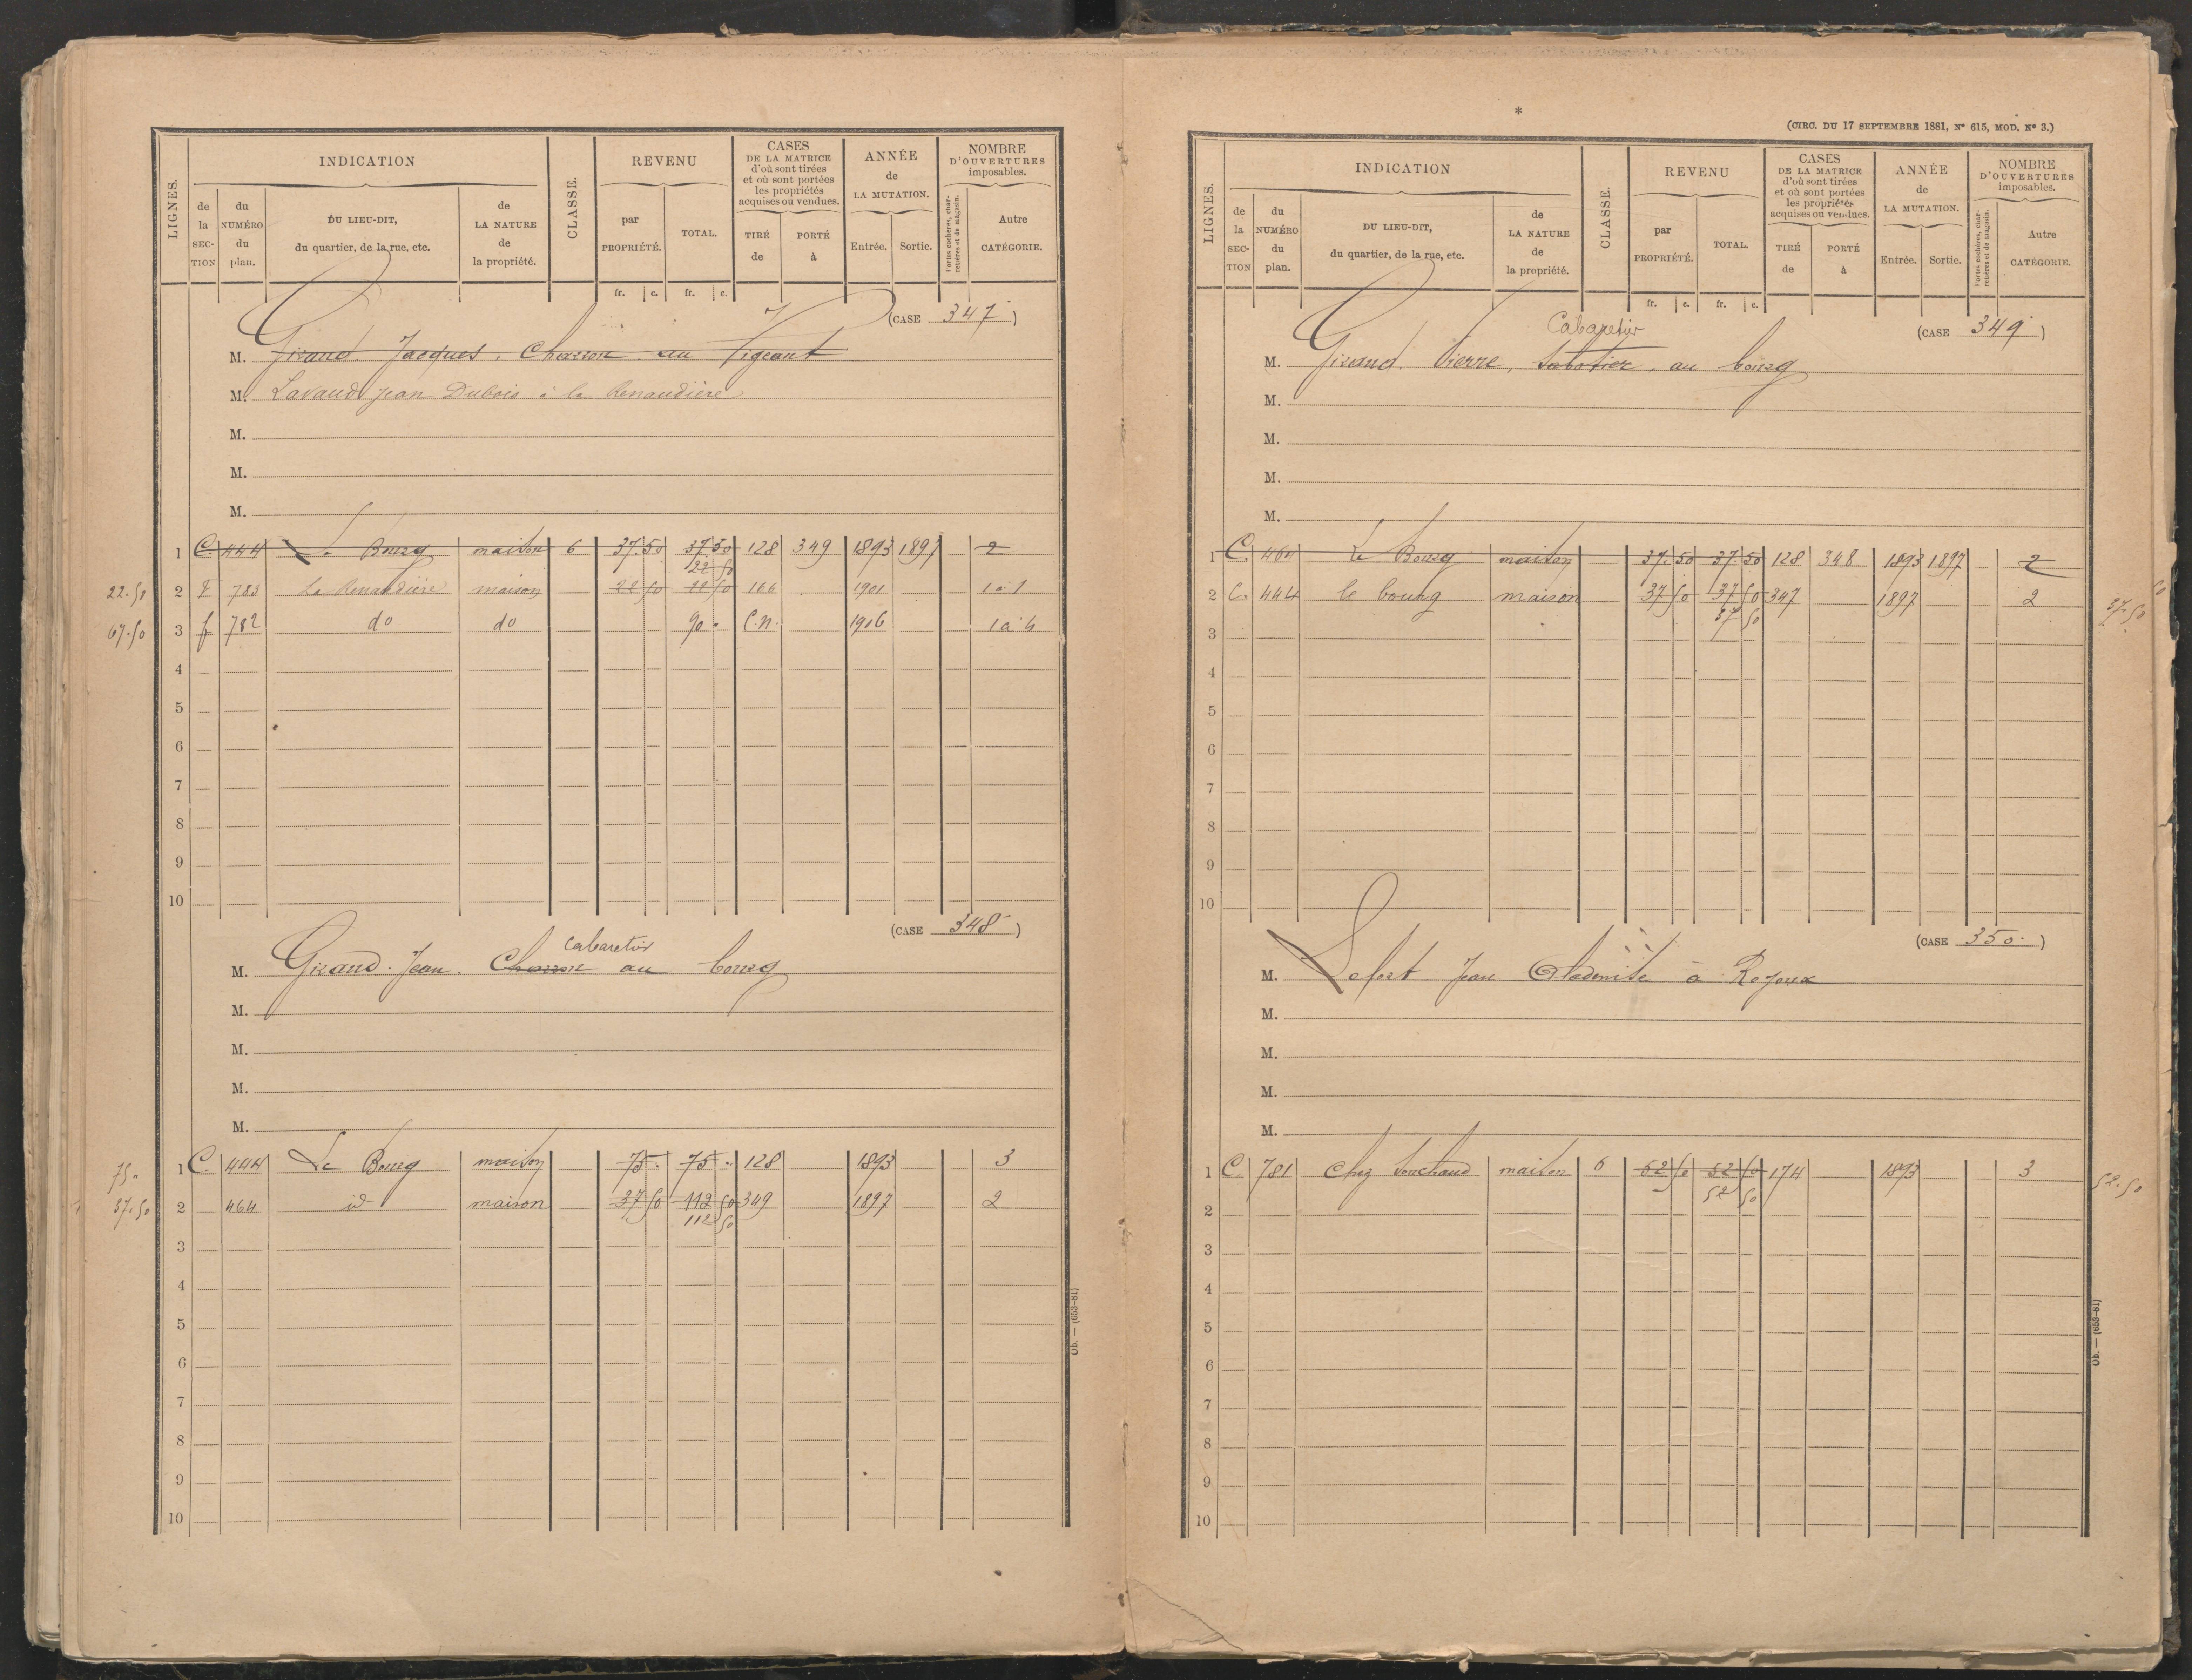 LIGNES.
INDICATION
de la SECTION
du NUMÉRO du plan.
DU LIEU-DIT, du quartier, de la rue, etc.
de LA NATURE de la propriété.
CLASSE.
REVENU
par PROPRIÉTÉ.
TOTAL.
CASES DE LA MATRICE d'où sont tirées et où sont portées les propriétés acquises ou vendues.
TIRÉ de
PORTÉ à
ANNÉE de LA MUTATION.
Entrée.
Sortie.
NOMBRE D'OUVERTURES imposables.
Portes cochères, charretières et de magasin.
Autre CATÉGORIE.
fr. c. fr. c.
(CASE 347)
M. Girand Jacques, Charron au Vigeant
M. Lavaud Jean Dubois à la Renaudière
M.
M.
M.
1 C. 444 Le Bourg maison 6 37.50 37.50 128 349 1893 1897 2
22 50
22.50 2 F 783 La Renaudière maison 22 50 22 50 166 1901 1 à 1
67.50 3 f 782 do do 90 . C.n. 1916 1 à 4
4
5
6
7
8
9
10
(CASE 348)
cabaretier
M. Girand Jean. Charron au bourg
M.
M.
M.
M.
75 " 1 C. 444 Le Bourg maison 75 . 75 " 128 1893 3
37.50 2 464 id maison 37 50 112 50 349 1897 2
112 50
3
4
5
6
7
8
9
10
Ob. — (653-81)
*
(CIRC. DU 17 SEPTEMBRE 1881, N° 615, MOD. N° 3.)
LIGNES.
INDICATION
de la SECTION
du NUMÉRO du plan.
DU LIEU-DIT, du quartier, de la rue, etc.
de LA NATURE de la propriété.
CLASSE.
REVENU
par PROPRIÉTÉ.
TOTAL.
CASES DE LA MATRICE d'où sont tirées et où sont portées les propriétés acquises ou vendues.
TIRÉ de
PORTÉ à
ANNÉE de LA MUTATION.
Entrée.
Sortie.
NOMBRE D'OUVERTURES imposables.
Portes cochères, charretières et de magasin.
Autre CATÉGORIE.
fr. c. fr. c.
(CASE 349)
Cabaretier
M. Girand Pierre, Sabotier, au bourg
M.
M.
M.
M.
1 C. 464 Le Bourg maison 37.50 37.50 128 348 1893 1897 2
2 C. 444 le bourg maison 37 50 37 50 347 1897 2 37.50
37 50
3
4
5
6
7
8
9
10
(CASE 350)
M. Lefort Jean à Rejoux
M.
M.
M.
M.
1 C 781 Chez Souchaud maison 6 52 50 52 50 174 1893 3 52.50
52 50
2
3
4
5
6
7
8
9
10
Ob. — (653-81)